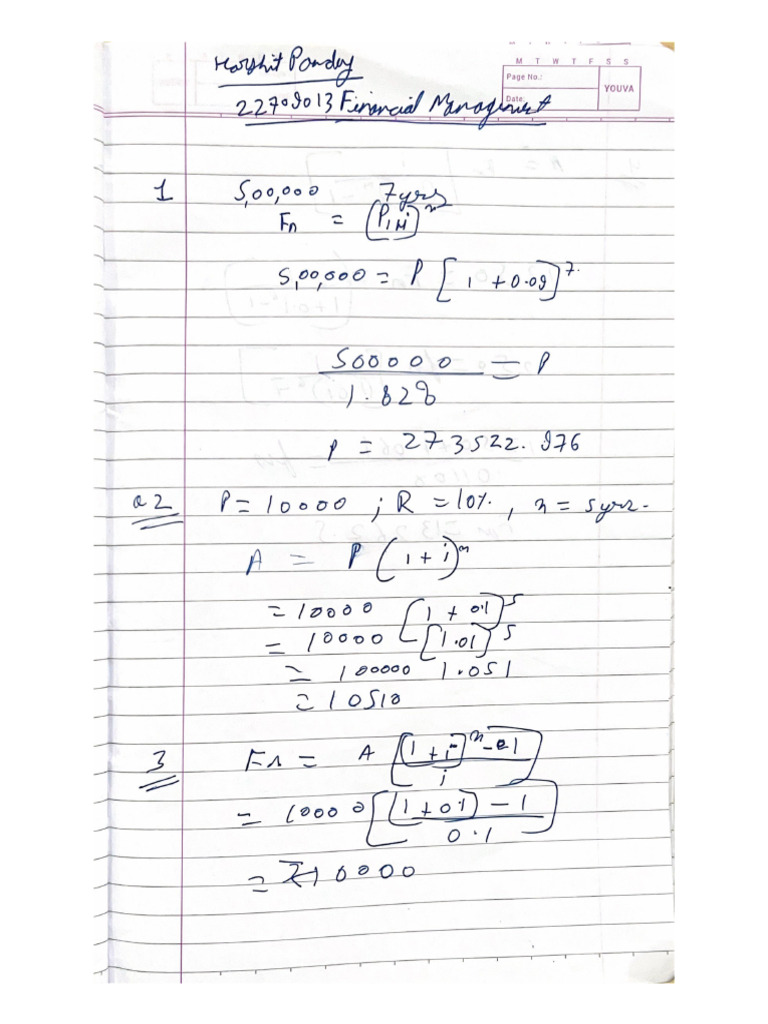 M T W T F S S
Page No.:
Date:
YOUVA
Harshit Pandey
22709013 Financial Management
1 5,00,000 7yrs
Fn = (P, i)^n
5,00,000 = P [1 + 0.09]^7.
500000 / 1.828 = P
P = 273522.976
Q2 P = 10000 ; R = 10%, n = 5yrs.
A = P (1 + i)^n
= 10000 [1 + 0.1]^5
= 10000 [1.01]^5
= 100000 1.051
= 10510
3 Fn = A [(1 + i)^n - 1 / i]
= 10000 [(1 + 0.1) - 1 / 0.1]
= ₹10000